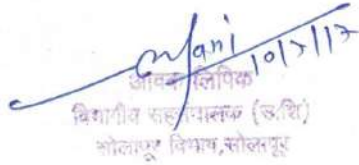 10/7/17
आवक लिपिक
विभागीय सहसंचालक (उ.शि)
सोलापूर विभाग, सोलापूर